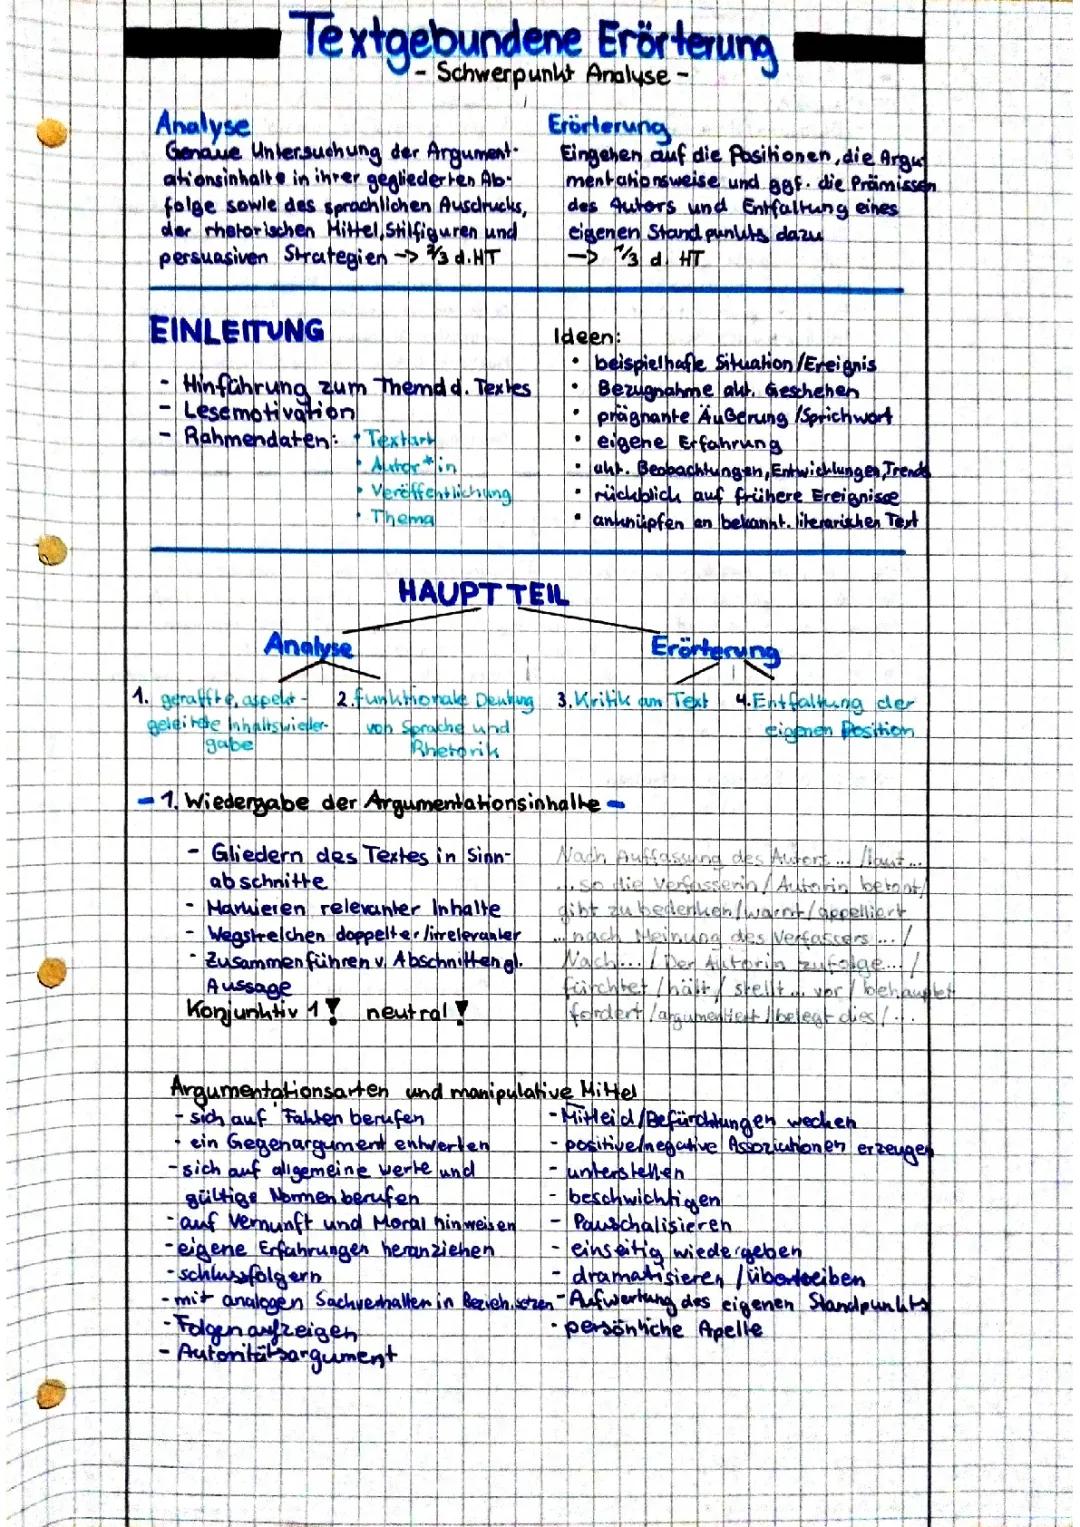 Textgebundene Erörterung
- Schwerpunkt Analyse -
Analyse
Genaue Untersuchung der Argument-
ationsinhalte in ihrer gegliederten Ab-
folge sowie des sprachlichen Ausdrucks,
der rhetorischen Mittel, Stilfiguren und
persuasiven Strategien -> 2/3 d. HT
Erörterung
Eingehen auf die Positionen, die Argu
mentationsweise und ggf. die Prämissen
des Autors und Entfaltung eines
eigenen Standpunkts dazu
-> 1/3 d. HT
EINLEITUNG
- Hinführung zum Thema d. Textes
- Lesemotivation
- Rahmendaten: • Textart
• Autor*in
• Veröffentlichung
• Thema
Ideen:
• beispielhafte Situation/Ereignis
• Bezugnahme akt. Geschehen
• prägnante Äußerung /Sprichwort
• eigene Erfahrung
• akt. Beobachtungen, Entwicklungen, Trends
• rückblick auf frühere Ereignisse
• anknüpfen an bekannt. literarischen Text
HAUPTTEIL
Analyse
Erörterung
1. geraffte, aspekt-
geleitete Inhaltswieder-
gabe
2. funktionale Deutung
von Sprache und
Rhetorik
3. Kritik am Text
4. Entfaltung der
eigenen Position
- 1. Wiedergabe der Argumentationsinhalte -
- Gliedern des Textes in Sinn-
abschnitte
- Markieren relevanter Inhalte
- Wegstreichen doppelter/irrelevanter
- Zusammenführen v. Abschnitten gl.
Aussage
Konjunktiv 1! neutral!
Nach Auffassung des Autors ... /laut ...
... so die Verfasserin/Autorin betont/
gibt zu bedenken/warnt/appelliert
... nach Meinung des Verfassers ... /
Nach ... / Der Autorin zufolge ... /
fürchtet /hält / stellt ... vor / behauptet
fordert /argumentiert / belegt dies / ...
Argumentationsarten und manipulative Mittel
- sich auf Fakten berufen
- ein Gegenargument entwerten
- sich auf allgemeine werte und
gültige Normen berufen
- auf Vernunft und Moral hinweisen
- eigene Erfahrungen heranziehen
- schlussfolgern
- mit analogen Sachverhalten in Bezieh. setzen
- Folgen aufzeigen
- Autoritätsargument
- Mitleid/Befürchtungen wecken
- positive/negative Assoziationen erzeugen
- unterstellen
- beschwichtigen
- Pauschalisieren
- einseitig wiedergeben
- dramatisieren /übertreiben
- Aufwertung des eigenen Standpunkts
- persönliche Apelle